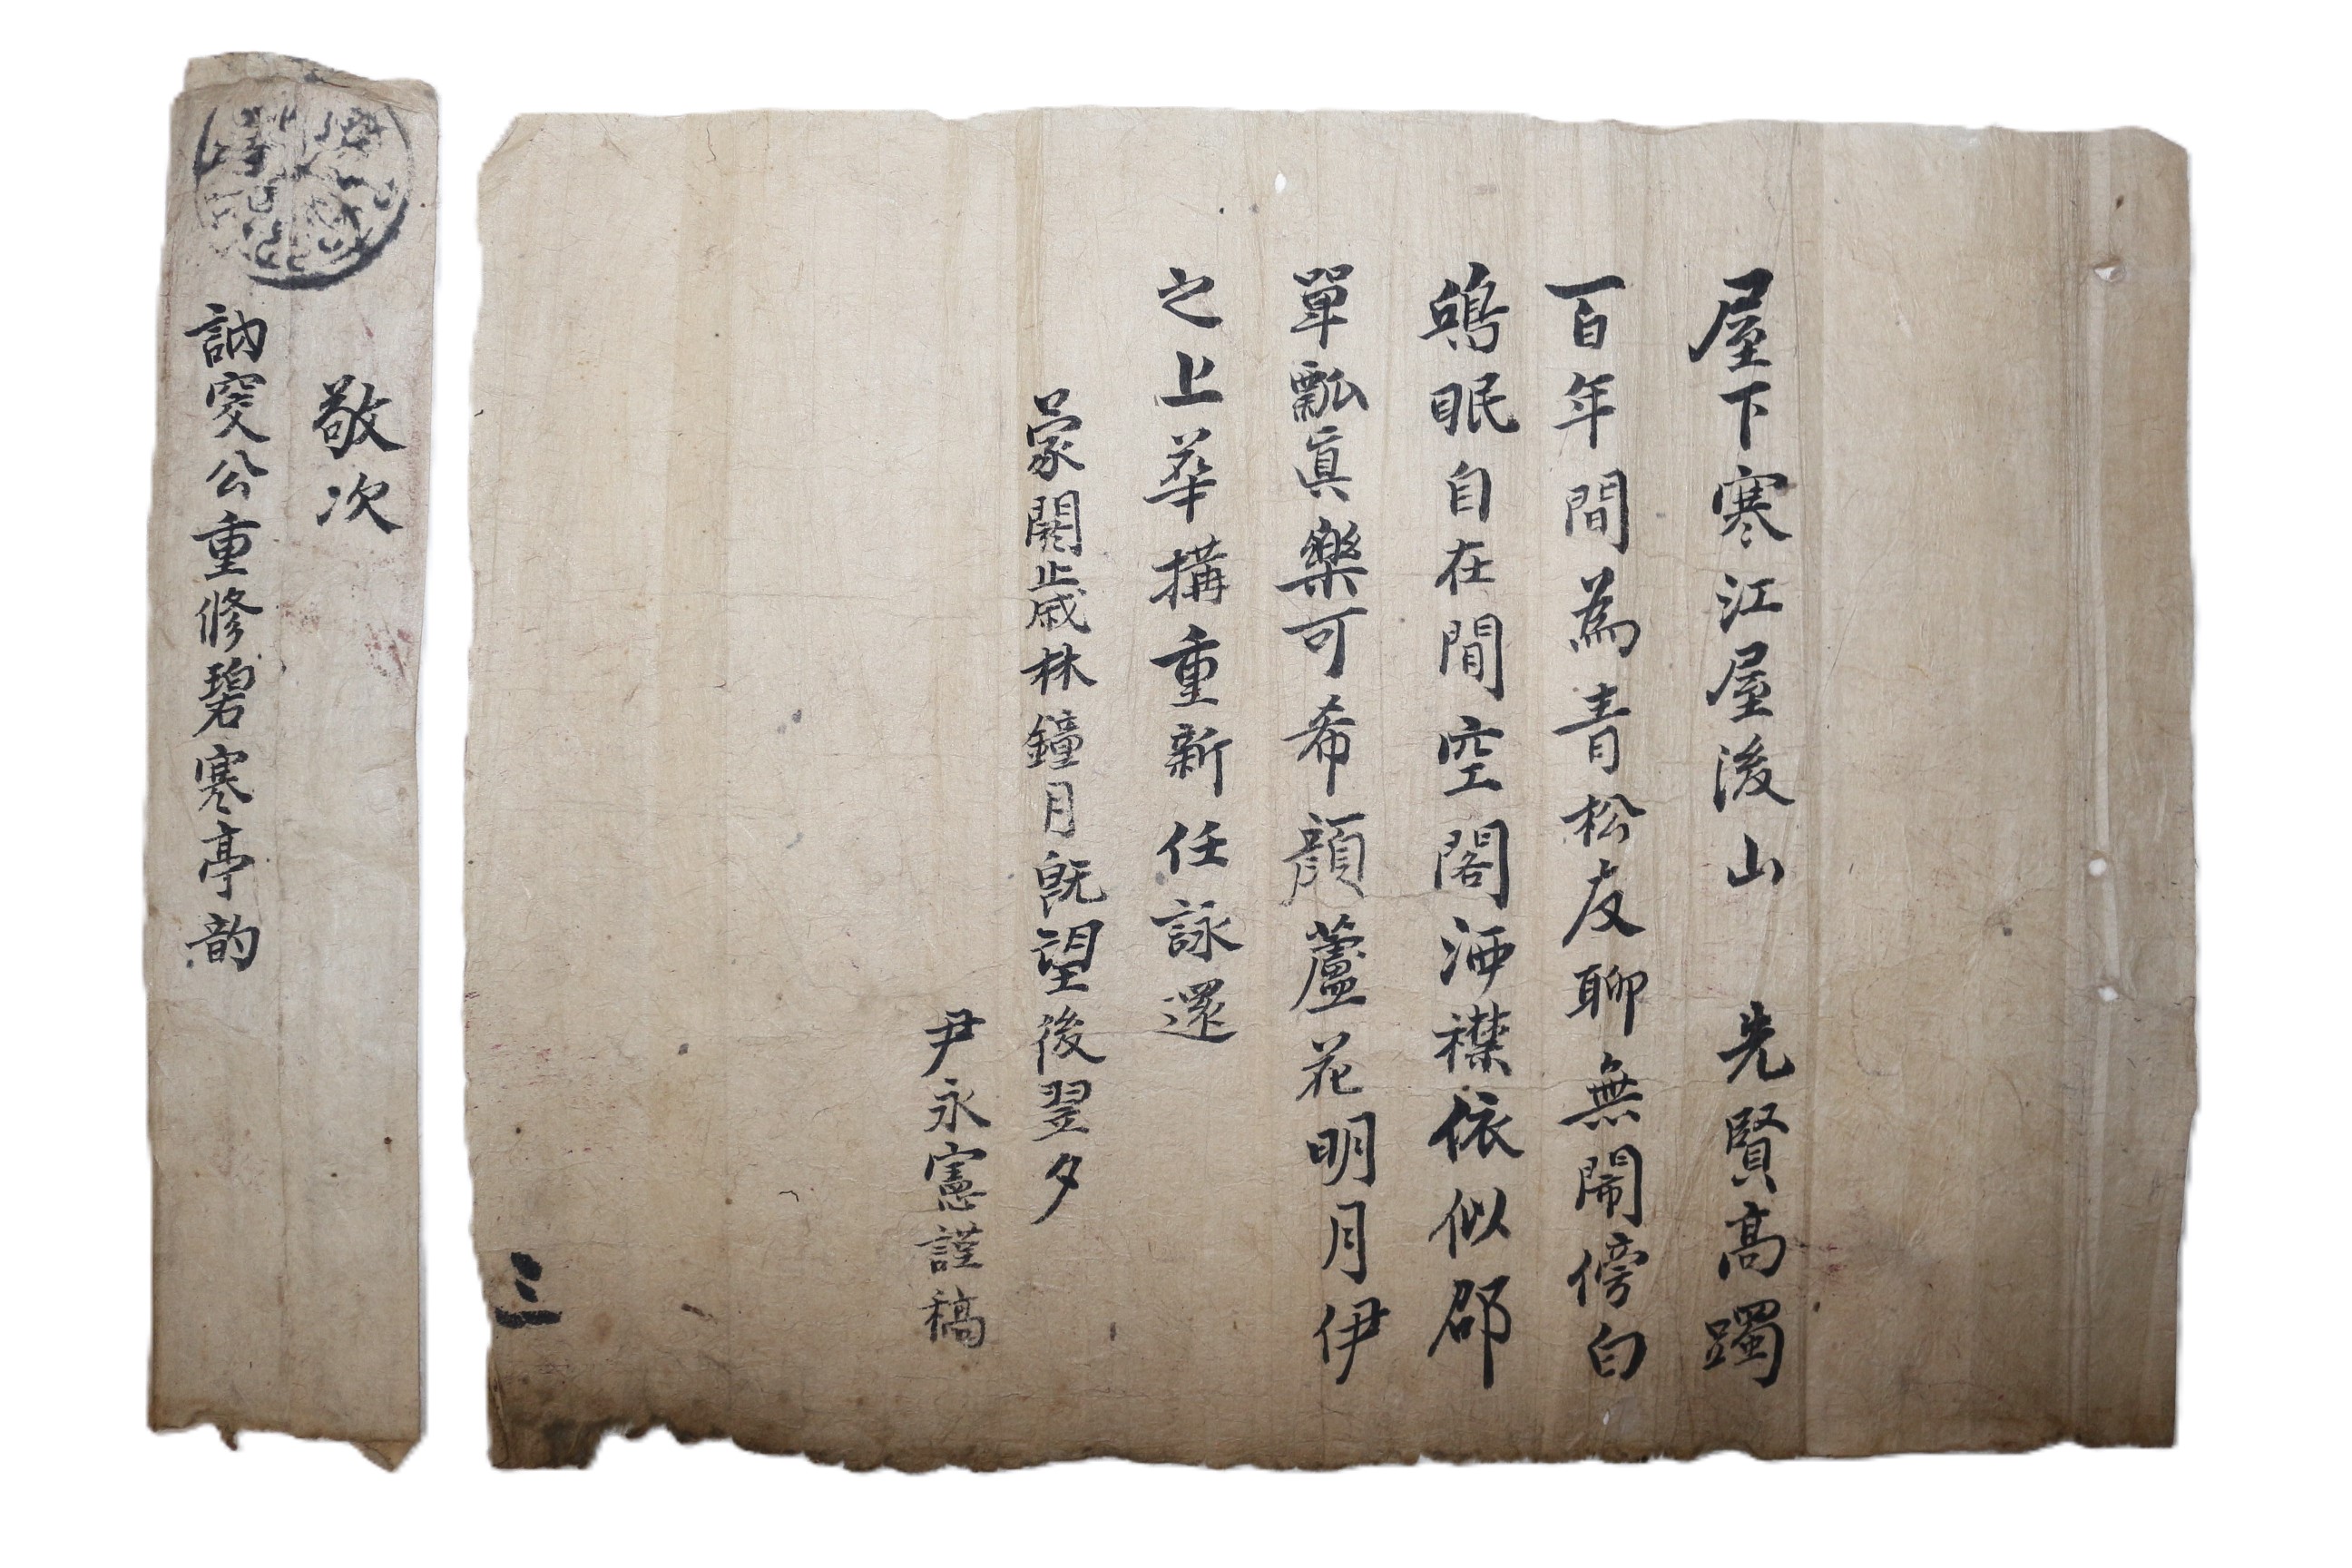 屋下寒江屋後山 先賢高躅
百年間為青松友聊無鬧傍白
鷗眠自在閒空閣洒襟依似邵
單瓢眞樂可希顏蘆花明月伊
之上華搆重新任詠還
蒙閼歲林鐘月旣望後翌夕
尹永憲謹稿
三
敬次
訥窔公重修碧寒亭韵